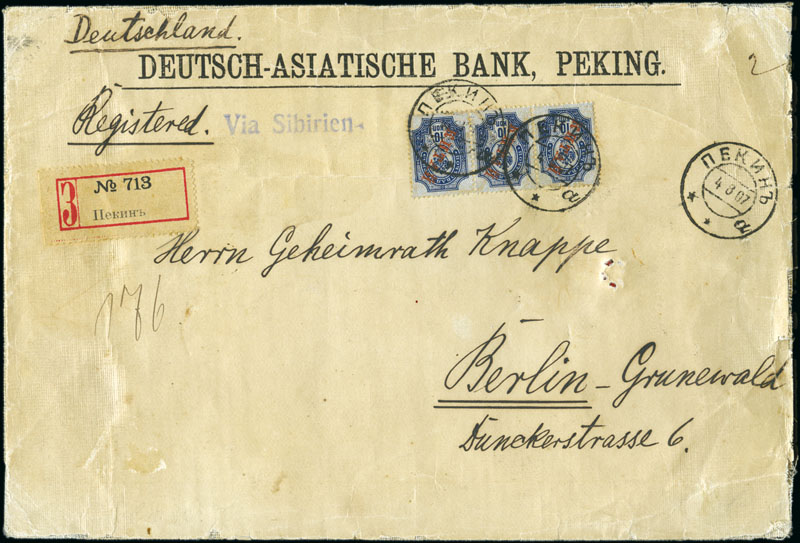 Deutschland.
DEUTSCH-ASIATISCHE BANK, PEKING.
2
Registered.
Via Sibirien
ПЕКИНЪ
10 10 10
ПЕКИНЪ
а
ПЕКИНЪ
4 8 07
а
З
№ 713
Пекинъ
Herrn Geheimrath Knappe
176
Berlin - Grunewald
Dunckerstrasse 6.